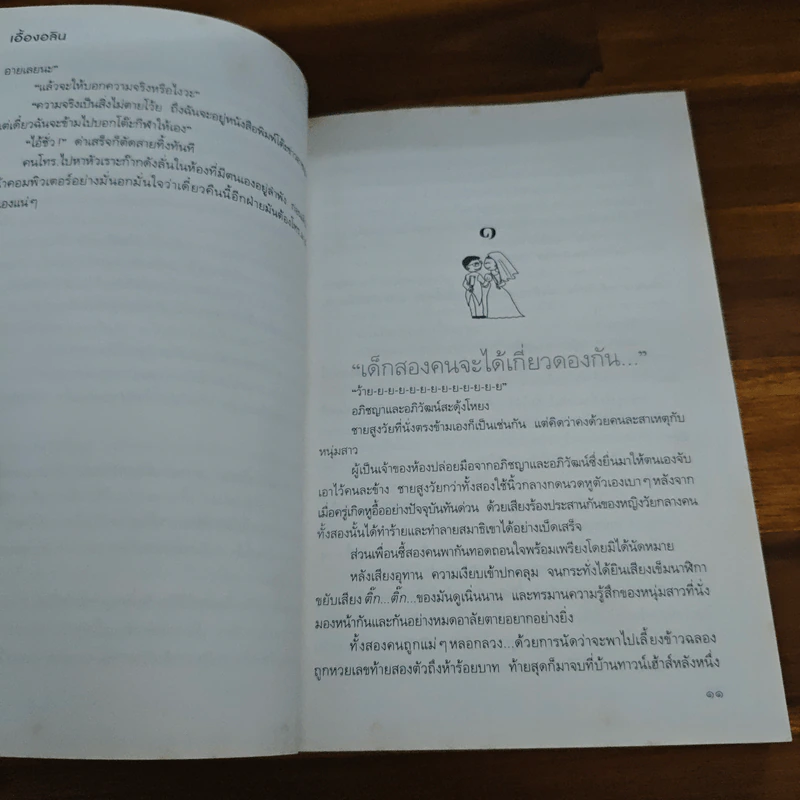 เอื้องอลิน
อายเลยนะ"
"แล้วจะให้บอกความจริงหรือไงวะ"
"ความจริงเป็นสิ่งไม่ตายไร้ย ถึงฉันจะอยู่หนังสือพิมพ์โต๊ะ
แต่เดี๋ยวฉันจะข้ามไปบอกโต๊ะกีฬาให้เอง"
"ไอ้ชั่ว!" ด่าเสร็จก็ตัดสายทิ้งทันที
คนโทร.ไปหาหัวเราะก๊ากดังลั่นในห้องที่มีตนเองอยู่ลำพัง
คอมพิวเตอร์อย่างมั่นอกมั่นใจว่าเดี๋ยวคืนนี้อีกฝ่ายมันต้องโทร.
องแน่ๆ
๑
"เด็กสองคนจะได้เกี่ยวดองกัน..."
"ว้าย-ย-ย-ย-ย-ย-ย-ย-ย-ย-ย-ย-ย"
อภิชญาและอภิวัฒน์สะดุ้งโหยง
ชายสูงวัยที่นั่งตรงข้ามเองก็เป็นเช่นกัน แต่คิดว่าคงด้วยคนละสาเหตุกับ
หนุ่มสาว
ผู้เป็นเจ้าของห้องปล่อยมือจากอภิชญาและอภิวัฒน์ซึ่งยื่นมาให้ตนเองจับ
เอาไว้คนละข้าง ชายสูงวัยกว่าทั้งสองใช้นิ้วกลางกดนวดหูตัวเองเบาๆ หลังจาก
เมื่อครู่เกิดหูอื้ออย่างปัจจุบันทันด่วน ด้วยเสียงร้องประสานกันของหญิงวัยกลางคน
ทั้งสองนั้นได้ทำร้ายและทำลายสมาธิเขาได้อย่างเบ็ดเสร็จ
ส่วนเพื่อนซี้สองคนพากันทอดถอนใจพร้อมเพรียงโดยมิได้นัดหมาย
หลังเสียงอุทาน ความเงียบเข้าปกคลุม จนกระทั่งได้ยินเสียงเข็มนาฬิกา
ขยับเสียง ติ๊ก...ติ๊ก...ของมันดูเนิ่นนาน และทรมานความรู้สึกของหนุ่มสาวที่นั่ง
มองหน้ากันและกันอย่างหมดอาลัยตายอยากอย่างยิ่ง
ทั้งสองคนถูกแม่ๆ หลอกลวง...ด้วยการนัดว่าจะพาไปเลี้ยงข้าวฉลอง
ถูกหวยเลขท้ายสองตัวถึงห้าร้อยบาท ท้ายสุดก็มาจบที่บ้านทาวน์เฮ้าส์หลังหนึ่ง
๑๑